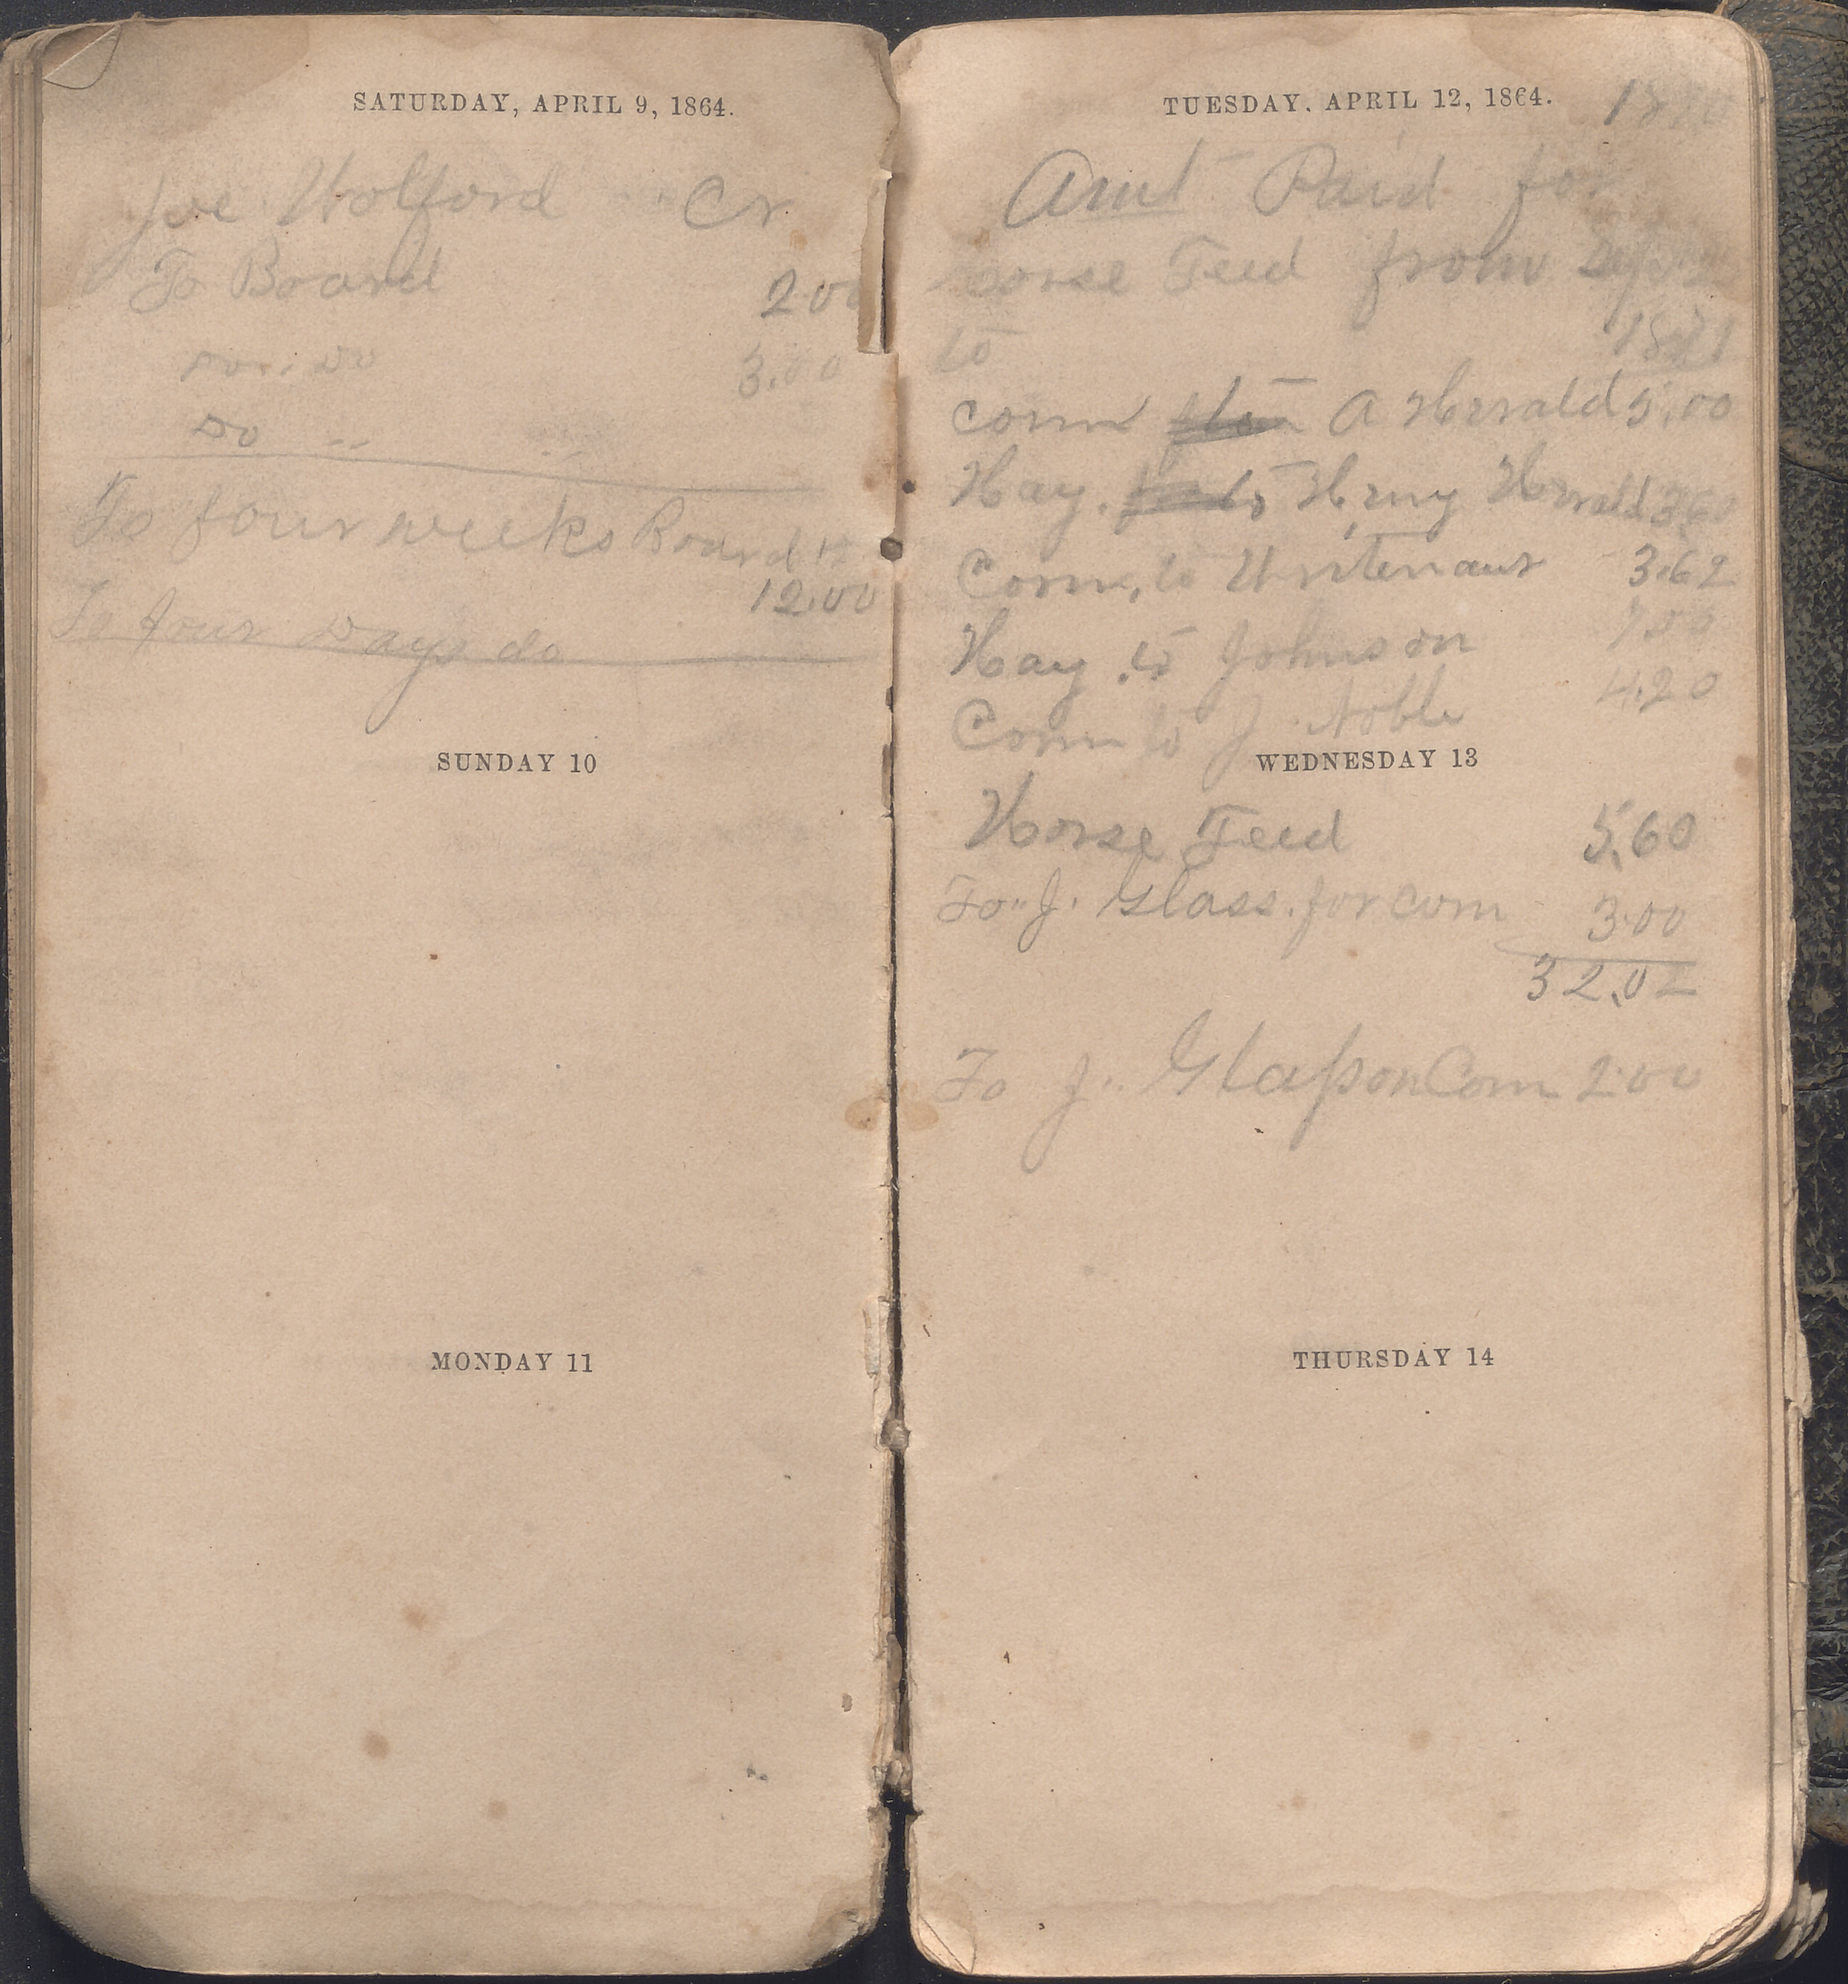 SATURDAY, APRIL 9, 1864.
Joe Wolford Cr
To Board 2.00
Do .. Do 3.00
Do ..
To four weeks Board
12.00
To four Days do
SUNDAY 10
MONDAY 11
TUESDAY. APRIL 12, 1864. 1870
Amt Paid for
Horse Feed from
to 1871
corn A Herrald 5.00
Hay. to Henry Herrald 3.60
Corn, to 3.62
Hay to Johnson
Corn to J Noble 4.20
WEDNESDAY 13
Horse Feed 5.60
To J. Glass. for corn 3.00
32.02
To J. Glass on Corn 2.00
THURSDAY 14